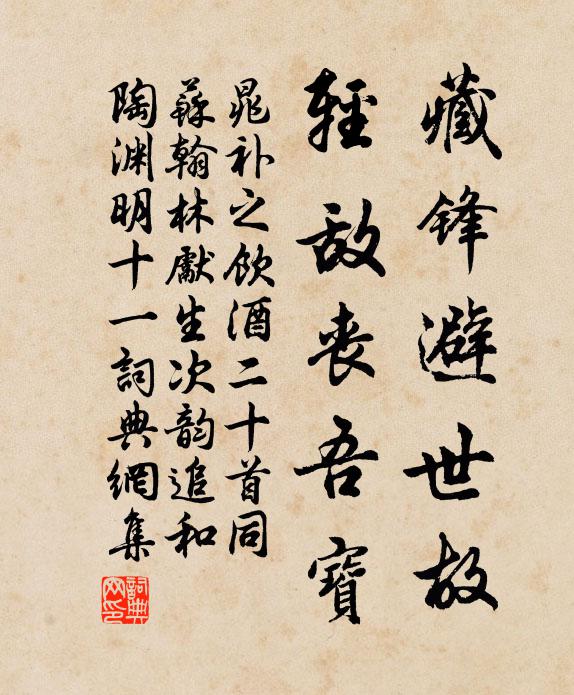 藏鋒避世故
輕敵喪吾寶
晁补之飲酒二十首同
蘇翰林獻生次韵追和
陶渊明十一詞典網集
詞典
网印